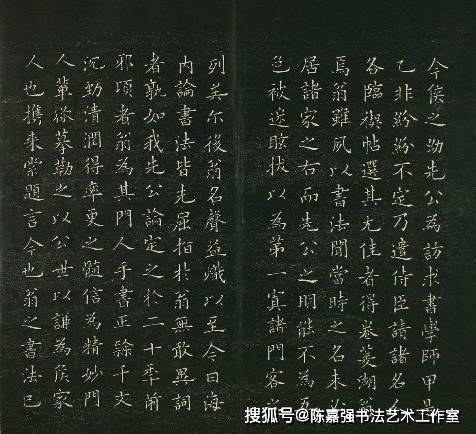 今侯之幼先公為訪求書學師甲是
乙非紛紛不定乃遣侍臣請諸名人
各臨禊帖選其尤佳者得卷菱湖翁
焉翁雖夙以書法聞當時之名未必
居諸家之右而先公之明能不為五
色被迷眩拔以為第一寘諸門客之
列矣尔後翁名聲益熾以至今日海
内論書法皆先屈指於翁無敢異詞
者歟如我先公論定之於二十季前
邪頃者翁為其門人手書正隸千文
沉勁清潤得率更之髓信為精妙門
人輩徐摹勒之以公世以謙為侯家
人也携来索題言今也翁之書法已
搜狐号@陈嘉强书法艺术工作室